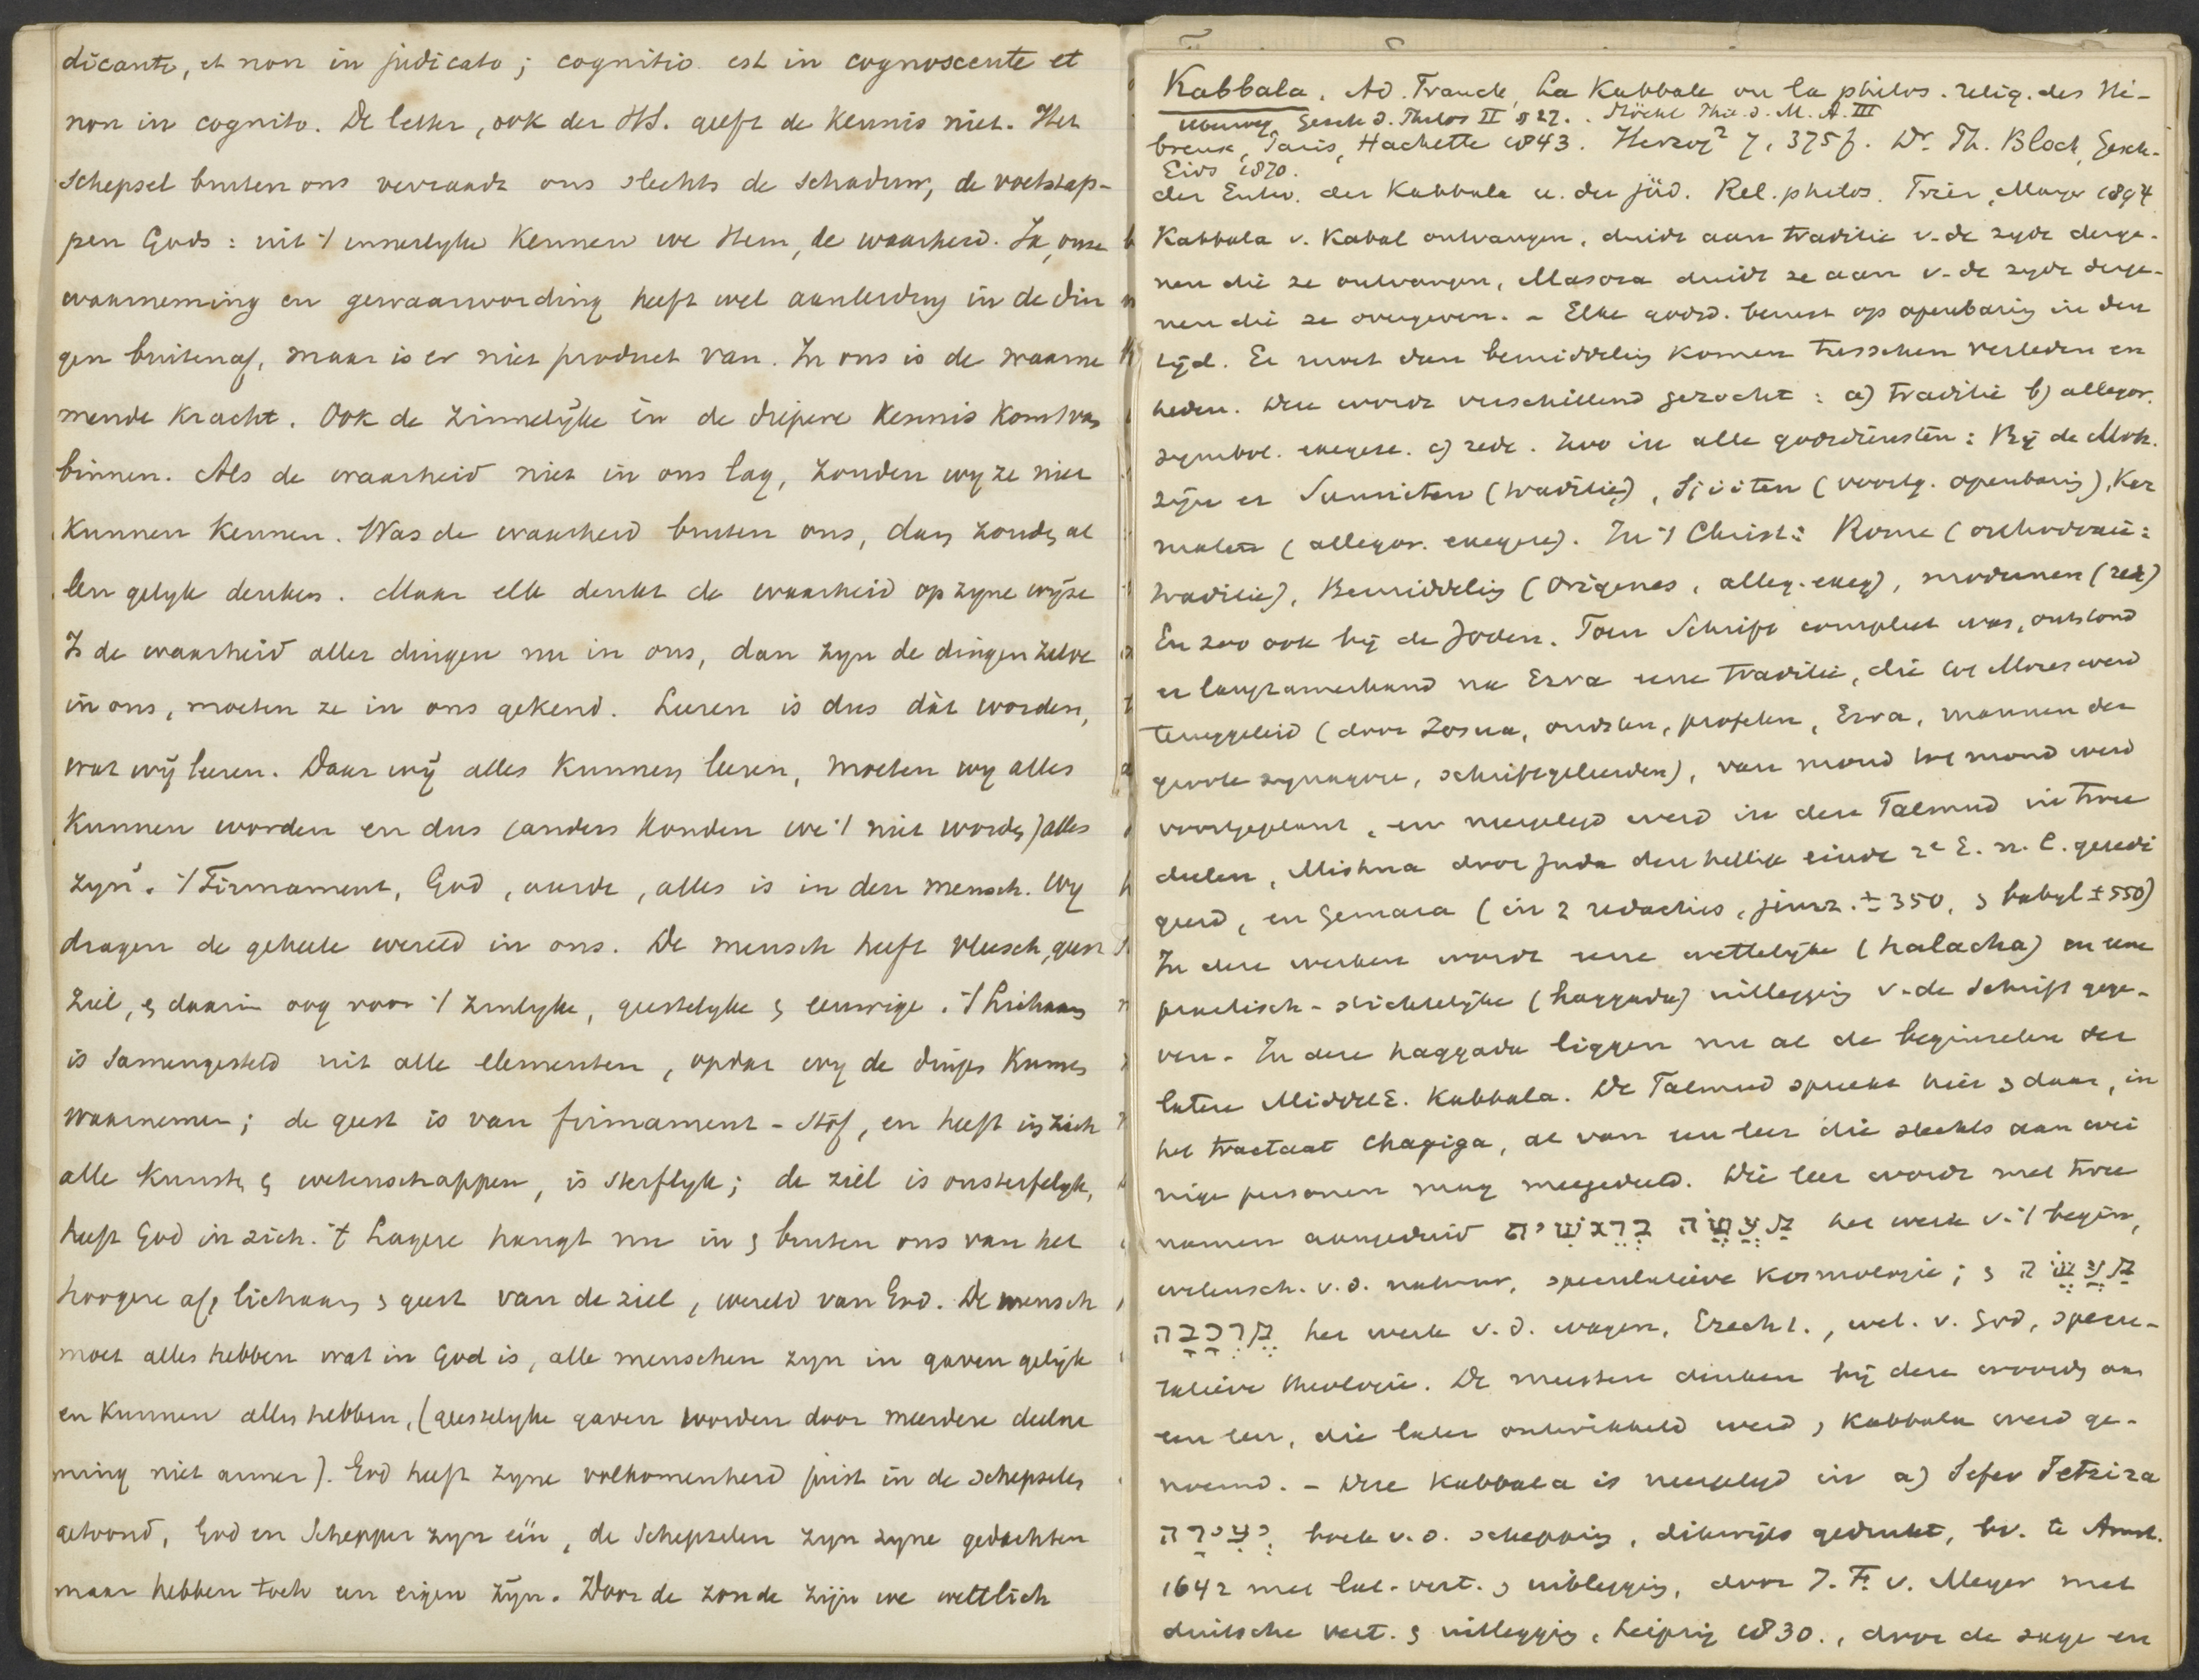 dicante, et non in judicato; cognitio est in cognoscente et
non in cognito. De letter, ook der HS. geeft de kennis niet. Het
schepsel buiten ons verraadt ons slechts de schaduw, de voetstap-
pen Gods: uit 't innerlyke kennen we Hem, de waarheid. Ja, onze
waarneming en gewaarwording heeft wel aanleiding in de din
gen buitenaf, maar is er niet product van. In ons is de waarne
mende kracht. Ook de zinnelijke en de diepere kennis komt van
binnen. Als de waarheid niet in ons lag, zouden wy ze niet
kunnen kennen. Was de waarheid buiten ons, dan zouden al
len gelyk denken. Maar elk denkt de waarheid op zyne wijze
Is de waarheid aller dingen nu in ons, dan zyn de dingen zelve
in ons, moeten ze in ons gekend. Leeren is dus dàt worden,
wat wij leeren. Daar wij alles kunnen leeren, moeten wy alles
kunnen worden en dus (anders konden we 't niet worden) alles
zyn. 't Firmament, God, aarde, alles is in den mensch. Wy
dragen de geheele wereld in ons. De mensch heeft vleesch, geest
ziel, & daarin oog voor 't zinlyke, geestelyke & eeuwige. 't Lichaam
is samengesteld uit alle elementen, opdat wy de dingen kunnen
waarnemen; de geest is van firmament-stof, en heeft in zich
alle kunsten & wetenschappen, is sterflyk; de ziel is onsterfelyk,
heeft God in zich. 't Lagere hangt nu in & buiten ons van het
hoogere af, lichaam & geest van de ziel, wereld van God. De mensch
moet alles hebben wat in God is, alle menschen zyn in gaven gelijk
en kunnen alles hebben, (geestelyke gaven worden door meerdere deelne
ming niet armer). God heeft zyne volkomenheid juist in de schepselen
getoond, God en Schepper zyn één, de schepselen zyn zyne gedachten
maar hebben toch een eigen zijn. Door de zonde zijn we weltlich
Kabbala. Ad. Franck, La Kabbale ou la philos. relig. des Hé-
Ueberweg Gesch d. Philos II § 27. Stöckl Phil. d. M. A. III
breux, Paris, Hachette 1843. Herzog² 7, 375f. Dr. Ph. Bloch, Gesch.
Eivs 1870.
der Entw. der Kabbala u. der jüd. Rel. philos. Trier, Mayer 1894
Kabbala v. Kabal ontvangen, duidt aan traditie v. de zyde derge-
nen die ze ontvangen, Masora duidt ze aan v. de zyde derge-
nen die ze overgeven. - Elke godsd. berust op openbaring in den
tijd. Er moet dan bemiddeling komen tusschen verleden en
heden. Deze wordt verschillend gezocht: a) traditie b) allegor.
symbol. exegese. c) rede. Zoo in alle godsdiensten: Bij de Moh.
zijn er Sunniten (traditie), Sjiiten (voortg. openbaring), Kar
maten (allegor. exegese). In 't Christ.: Rome (orthodoxie:
traditie), Bemiddeling (Origenes, alleg. exeg), modernen (rede)
En zoo ook bij de Joden. Toen Schrift compleet was, ontstond
er langzamerhand na Ezra eene traditie, die tot Mozes werd
teruggeleid (door Josua, oudsten, profeten, Ezra, mannen der
groote synagoge, schriftgeleerden), van mond tot mond werd
voortgeplant, en neergelegd werd in den Talmud in twee
deelen, Mishna door Juda den heilige einde 2e E. n. C. geredi
geerd, en Gemara (in 2 redacties, jeruz. ± 350, & babyl ± 550)
In deze werken wordt eene wettelijke (halacha) en eene
practisch-stichtelijke (haggada) uitlegging v. de Schrift gege-
ven. In deze haggada liggen nu al de beginselen der
latere MiddelE. Kabbala. De Talmud spreekt hier & daar, in
het tractaat Chagiga, al van een leer die slechts aan wei
nige personen mag meegedeeld. Die leer wordt met twee
namen aangeduid מַעֲשֵׂה בְרֵאשִׁית het werk v. 't begin,
wetensch. v. d. natuur, speculatieve kosmologie; & מַעֲשֵׂה
מֶרְכָּבָה het werk v. d. wagen, Ezech 1., wet. v. God, specu-
latieve theologie. De meesten denken bij deze woorden aan
een leer, die later ontwikkeld werd & Kabbala werd ge-
noemd. - Deze Kabbala is neergelegd in a) Sefer Jetzira
יְצִירָה, boek v. d. schepping, dikwijls gedrukt, bv. te Amst.
1642 met lat. vert. & uitlegging, door J. F. v. Meyer met
duitsche vert. & uitlegging, Leipzig 1830., door de sage en